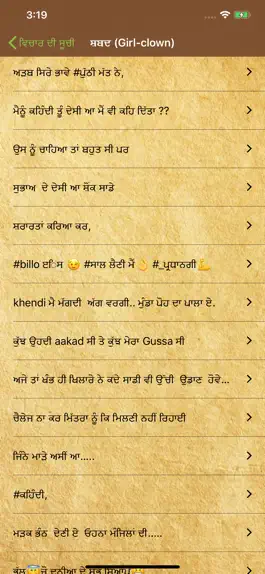 3:19
ਵਿਚਾਰ ਦੀ ਸੂਚੀ
ਸ਼ਬਦ (Girl-clown)
ਅੜਬ ਸਿਰੇ ਭਾਵੇ #ਪੁੱਠੀ ਮੱਤ ਨੇ,
ਮੈਨੂੰ ਕਹਿੰਦੀ ਤੂੰ ਦੇਸੀ ਆ ਮੈਂ ਵੀ ਕਹਿ ਦਿੱਤਾ ??
ਉਸ ਨੂੰ ਚਾਹਿਆ ਤਾਂ ਬਹੁਤ ਸੀ ਪਰ
ਸੁਭਾਅ ਦੇ ਦੇਸੀ ਆ ਸ਼ੌਂਕ ਸਾਡੇ
ਸ਼ਰਾਰਤਾਂ ਕਰਿਆ ਕਰ,
#billo ਇਿਸ 😉 #ਸਾਲ ਲੈਣੀ ਮੈਂ 👌 #_ਪ੍ਰਧਾਨਗੀ 💪
khendi ਮੈ ਮੰਗਦੀ ਅੰਗ ਵਰਗੀ.. ਮੁੰਡਾ ਪੋਹ ਦਾ ਪਾਲਾ ਏ.
ਕੁੱਝ ਉਹਦੀ aakad ਸੀ ਤੇ ਕੁੱਝ ਮੇਰਾ Gussa ਸੀ
ਅਜੇ ਤਾਂ ਖੰਭ ਹੀ ਖਿਲਾਰੇ ਨੇ ਕਦੇ ਸਾਡੀ ਵੀ ਉੱਚੀ ਉਡਾਣ ਹੋਵੇ...
ਚੈਲੇਂਜ ਨਾ ਕਰ ਮਿੱਤਰਾ ਨੂੰ ਕਿ ਮਿਲਣੀ ਨਹੀਂ ਰਿਹਾਈ
ਜਿੰਨੇ ਮਾੜੇ ਅਸੀਂ ਆ.....
#ਕਹਿੰਦੀ,
ਮੜਕ ਭੰਨ ਦੇਣੀ ਏ ਓਹਨਾ ਮੰਜਿਲਾਂ ਦੀ.....